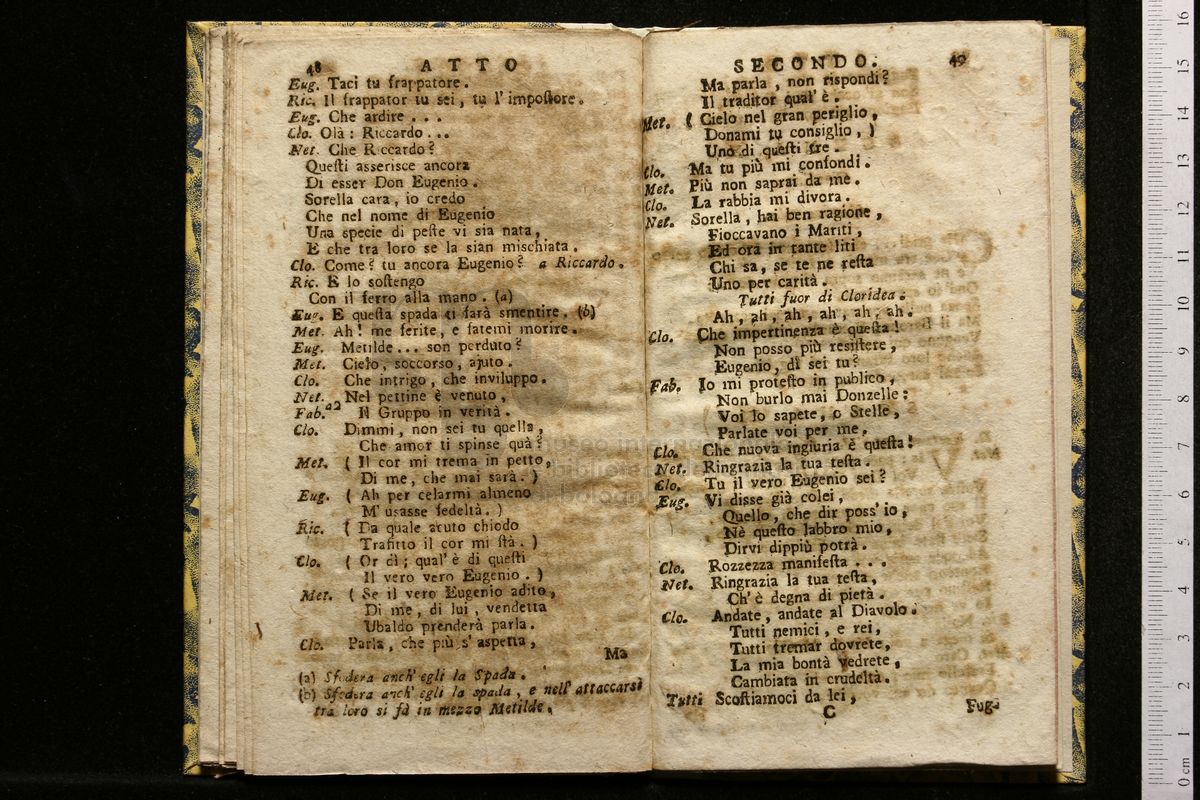 48 ATTO
Eug. Taci tu frappatore.
Ric. Il frappator tu sei, tu l' impoſtore.
Eug. Che ardire ...
Clo. Olà: Riccardo ...
Net. Che Riccardo?
Queſti asserisce ancora
Di esser Don Eugenio.
Sorella cara, io credo
Che nel nome di Eugenio
Una specie di peſte vi sia nata,
E che tra loro se la sian mischiata.
Clo. Come? tu ancora Eugenio? a Riccardo.
Ric. E lo soſtengo
Con il ferro alla mano. (a)
Eug. E queſta spada ti farà smentire. (b)
Met. Ah! me ferite, e fatemi morire.
Eug. Metilde... son perduto?
Met. Cielo, soccorso, ajuto.
Clo. Che intrigo, che inviluppo.
Net. Nel pettine è venuto,
Fab. a2 Il Gruppo in verità.
Clo. Dimmi, non sei tu quella,
Che amor ti spinse quà?
Met. ( Il cor mi trema in petto,
Di me, che mai sarà. )
Eug. ( Ah per celarmi almeno
M' usasse fedeltà. )
Ric. ( Da quale acuto chiodo
Trafitto il cor mi ſtà. )
Clo. ( Or dì; qual' è di queſti
Il vero vero Eugenio. )
Met. ( Se il vero Eugenio adito,
Di me, di lui, vendetta
Ubaldo prenderà parla.
Clo. Parla, che più s' aspetta,
Ma
(a) Sfodera anch' egli la Spada.
(b) Sfodera anch' egli la spada, e nell' attaccarsi
tra loro si fà in mezzo Metilde.
SECONDO. 49
Ma parla, non rispondi?
Il traditor qual' è.
Met. ( Cielo nel gran periglio,
Donami tu consiglio, )
Uno di queſti tre.
Clo. Ma tu più mi confondi.
Met. Più non saprai da me.
Clo. La rabbia mi divora.
Net. Sorella, hai ben ragione,
Fioccavano i Mariti,
Ed ora in tante liti
Chi sa, se te ne reſta
Uno per carità.
Tutti fuor di Cloridea.
Ah, ah, ah, ah, ah, ah.
Clo. Che impertinenza è queſta!
Non posso più resiſtere,
Eugenio, dì sei tu?
Fab. Io mi proteſto in publico,
Non burlo mai Donzelle:
Voi lo sapete, o Stelle,
Parlate voi per me.
Clo. Che nuova ingiuria è queſta!
Net. Ringrazia la tua teſta.
Clo. Tu il vero Eugenio sei?
Eug. Vi disse già colei,
Quello, che dir poss' io,
Nè queſto labbro mio,
Dirvi dippiù potrà.
Clo. Rozzezza manifeſta ...
Net. Ringrazia la tua teſta,
Ch' è degna di pietà.
Clo. Andate, andate al Diavolo.
Tutti nemici, e rei,
Tutti tremar dovrete,
La mia bontà vedrete,
Cambiata in crudeltà.
Tutti Scoſtiamoci da lei,
C Fuga